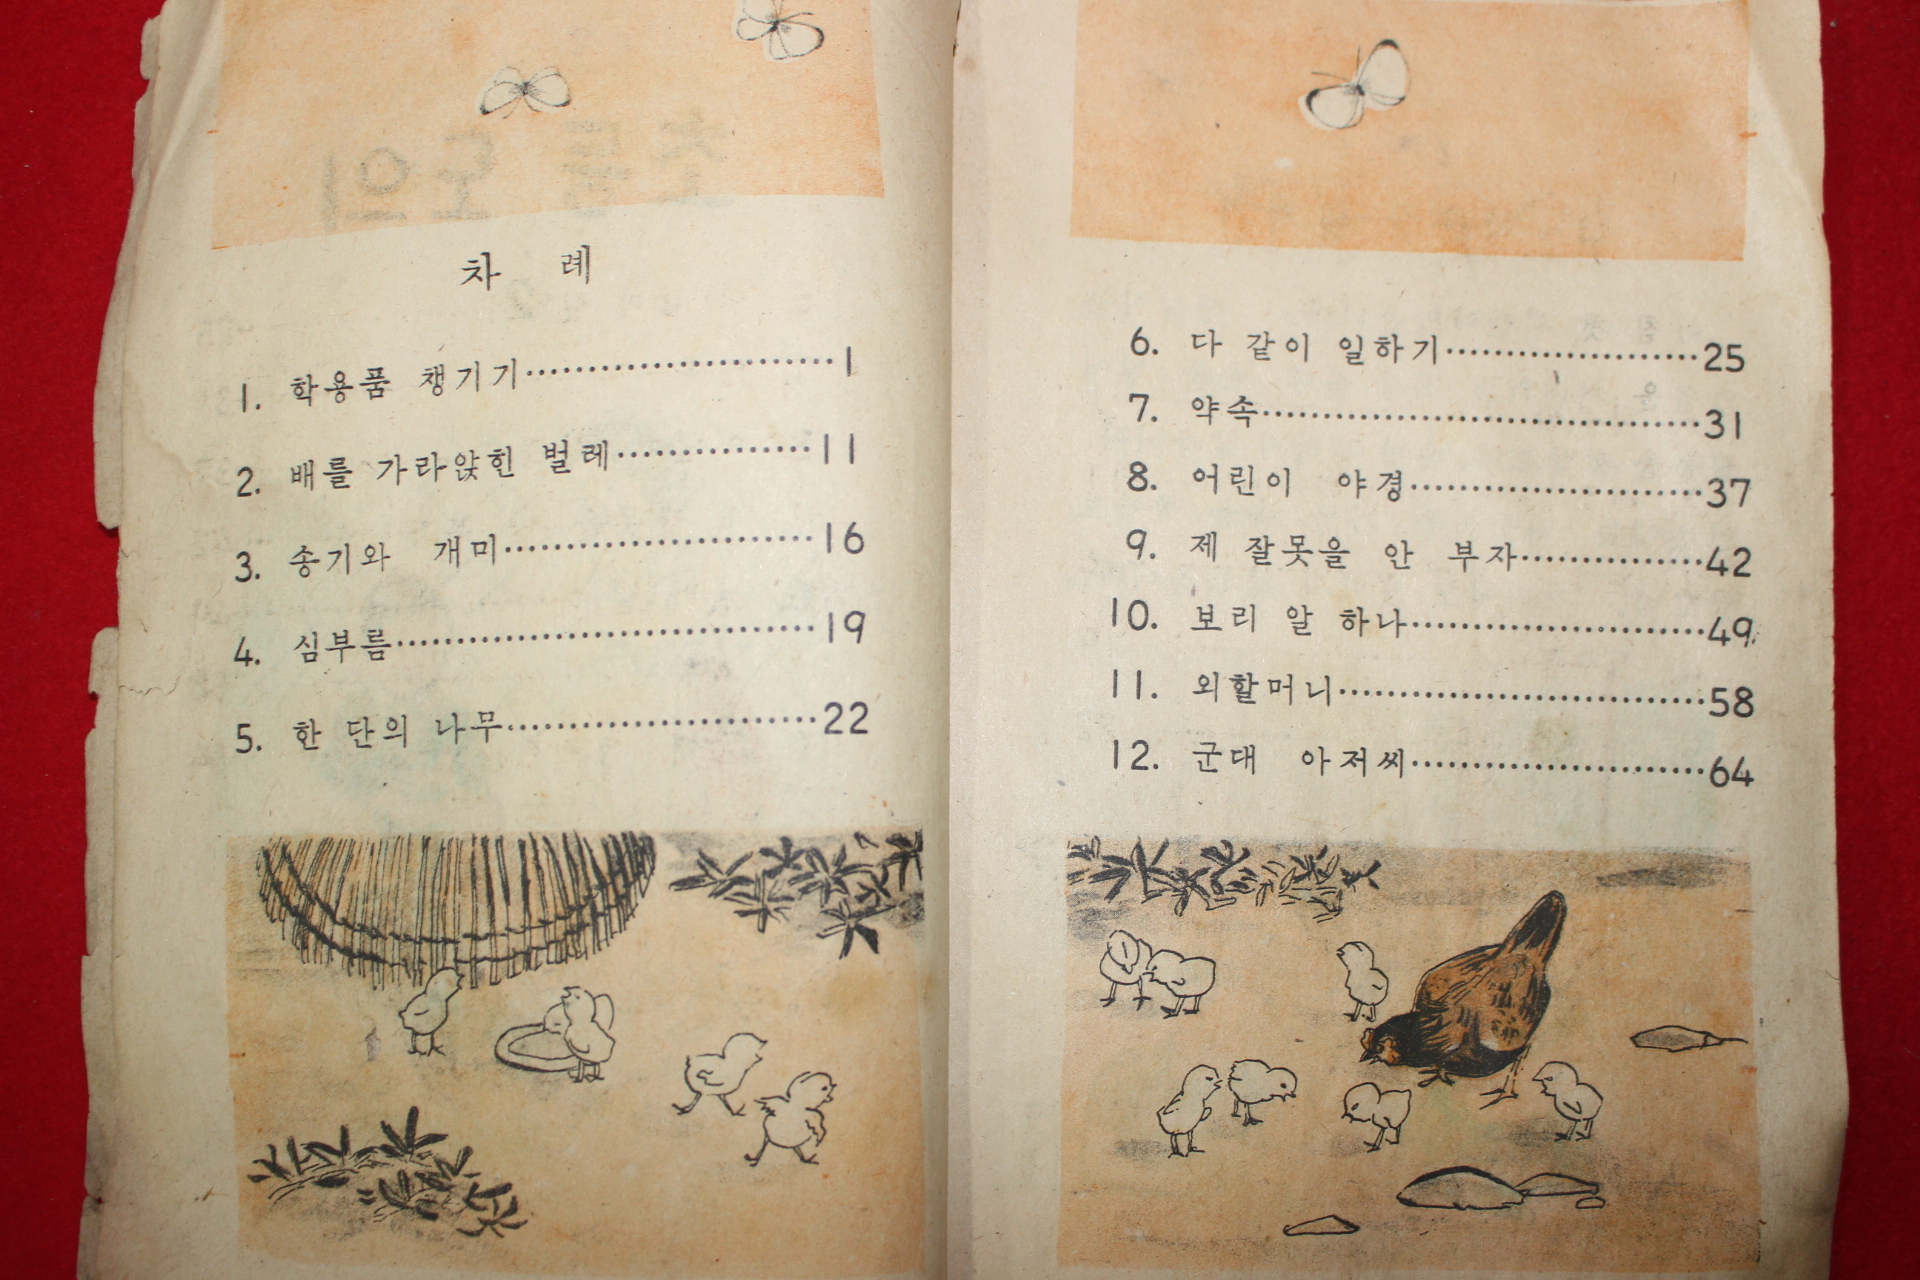 차 례
1. 학용품 챙기기……………………1
2. 배를 가라앉힌 벌레……………11
3. 송기와 개미……………………16
4. 심부름……………………………19
5. 한 단의 나무……………………22
6. 다 같이 일하기…………………25
7. 약속………………………………31
8. 어린이 야경……………………37
9. 제 잘못을 안 부자……………42
10. 보리 알 하나…………………49
11. 외할머니………………………58
12. 군대 아저씨……………………64